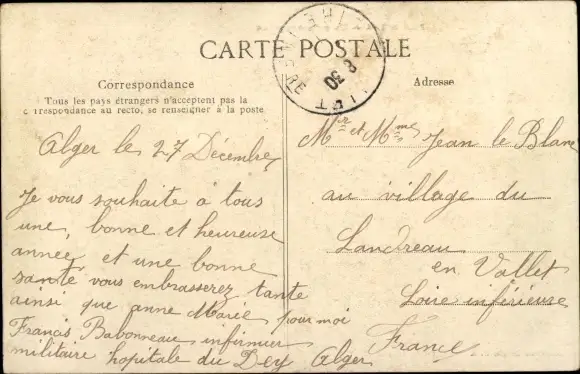 CARTE POSTALE
Correspondance
Tous les pays étrangers n'acceptent pas la
correspondance au recto, se renseigner à la poste
Alger le 27 Décembre
Je vous souhaite à tous
une, bonne et heureuse
année, et une bonne
santé vous embrasserez tante
ainsi que anne Marie pour moi
Francis Babonneau infirmier
militaire hopitale du Dey Alger
Adresse
Mr et Mme Jean le Blanc
au village du
Landreau
en Vallet
Loire inférieure
France
8
30